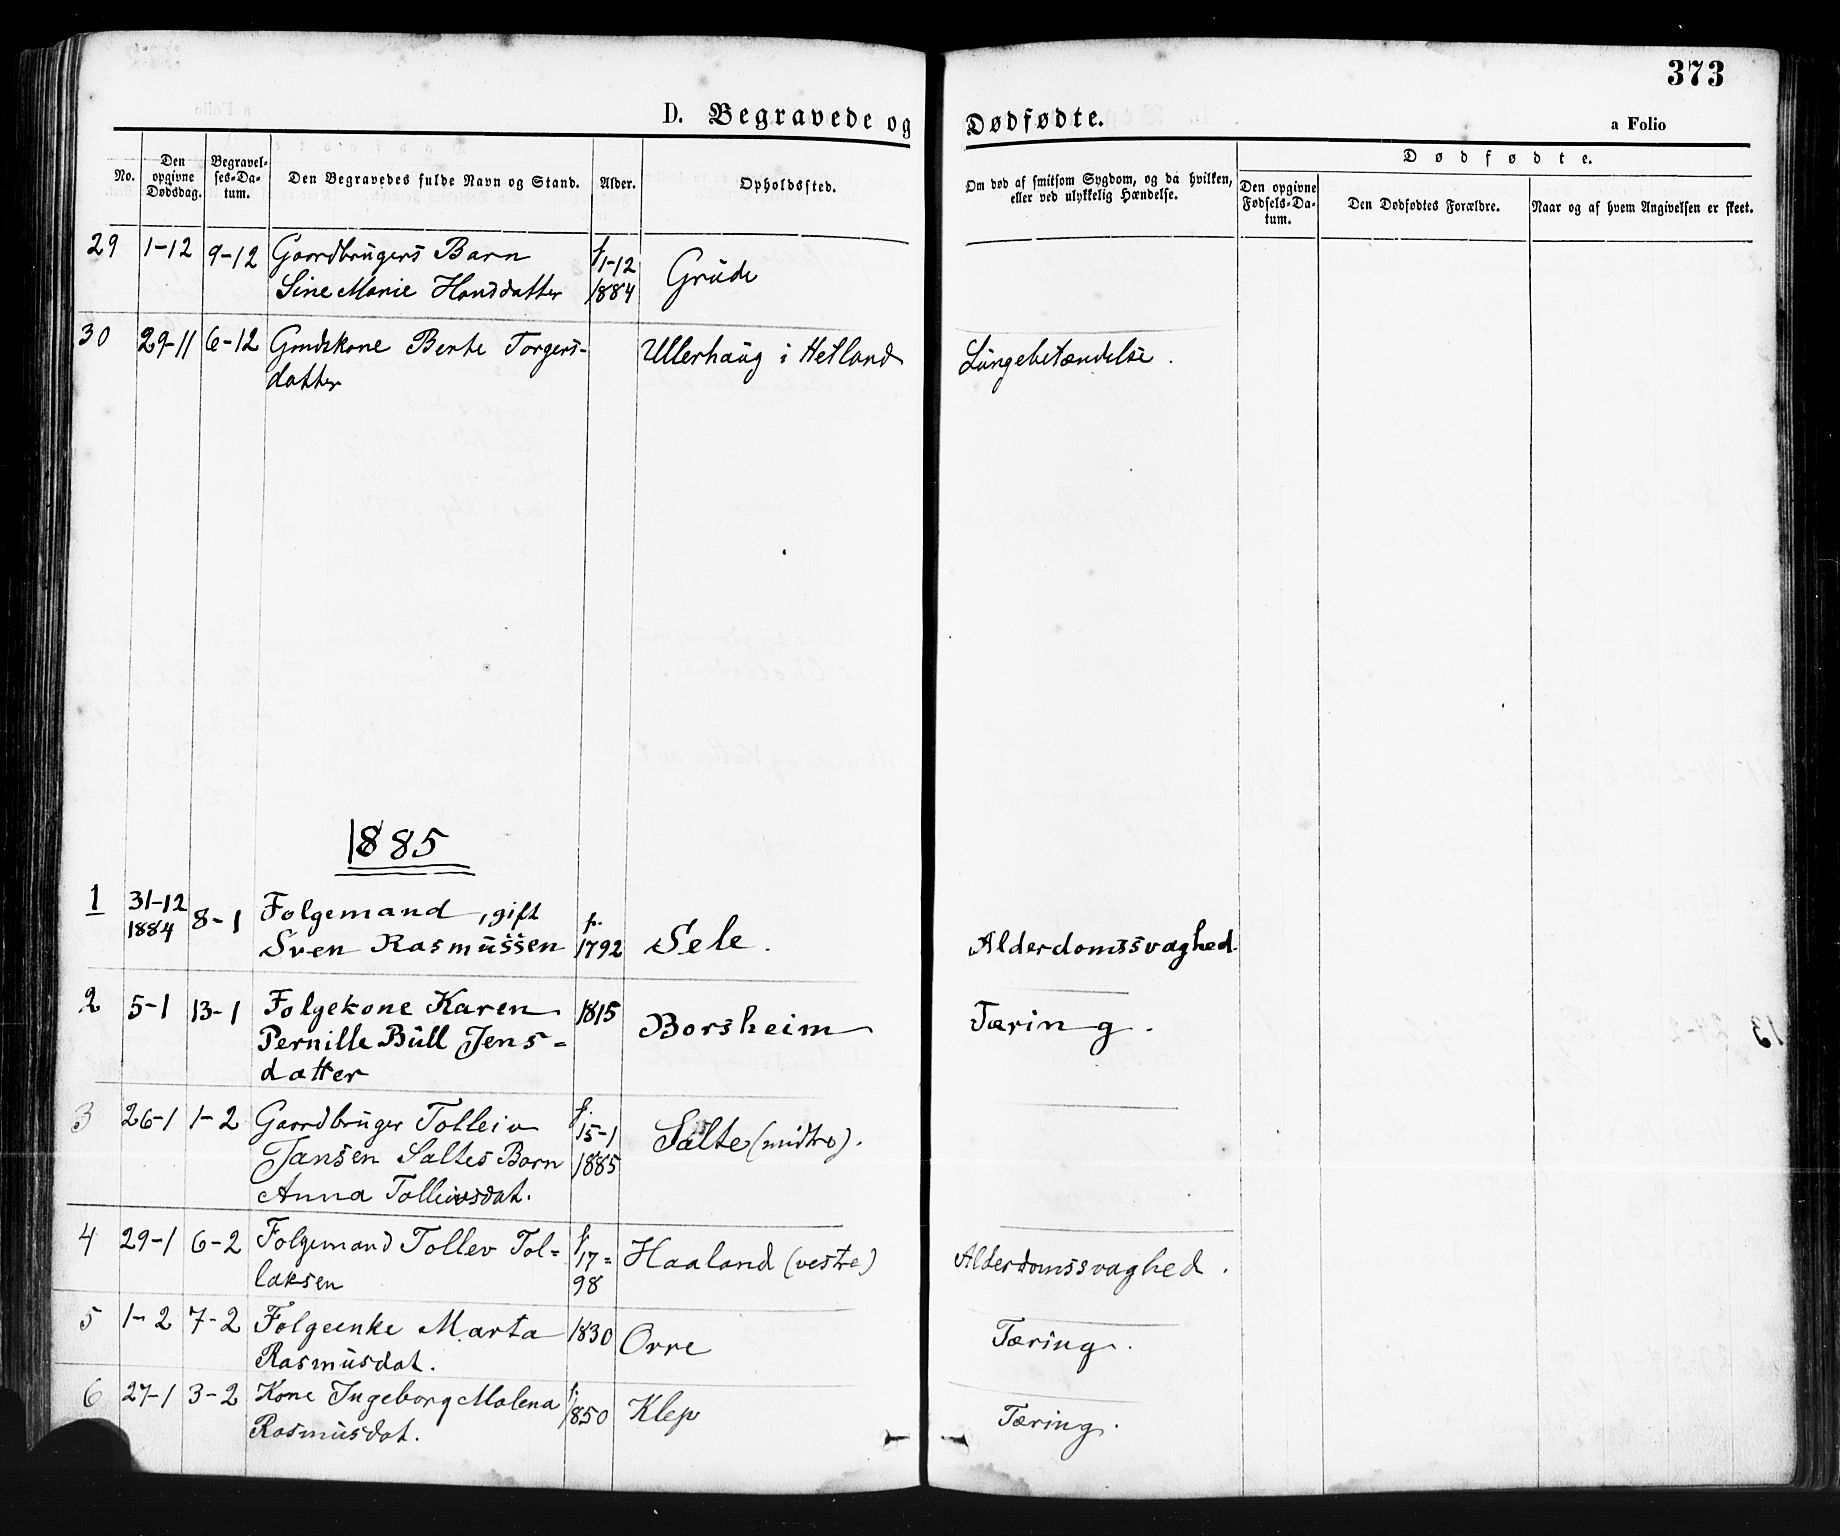 373
D. Begravede og Dødfødte.
a Folio
No.
Den opgivne Dødsdag.
Begravel-
ses-Da-
tum.
Den Begravedes fulde Navn og Stand.
Alder.
Opholdssted.
Om død af smitsom Sygdom, og da hvilken,
eller ved ulykkelig Hændelse.
Dødfødte.
Den opgivne
Fødsels-Da-
tum.
Den Dødfødtes Forældre.
Naar og af hvem Angivelsen er skeet.
29 1-12 9-12 Gaardbrugers Barn f. 1-12 Grude
Sine Marie Hansdatter 1884
30 29-11 6-12 Gmdskone Berte Torgers- Ullerhaug i Hetland Lungebetændelse.
datter
1885
1 31-12 8-1 Folgemand, gift f. Sele. Alderdomssvaghed.
1884 Sven Rasmussen 1792
2 5-1 13-1 Folgekone Karen 1815 Borsheim Tæring.
Pernille Bull Jens-
datter
3 26-1 1-2 Gaardbruger Tolleiv f. 15-1 Salte (midtre).
Jansen Saltes Barn 1885
Anna Tolleivsdat.
4 29-1 6-2 Folgemand Tollev Tol- f. 17- Haaland (vestre) Alderdomssvaghed.
laksen 98
5 1-2 7-2 Folgeenke Marta 1830 Orre Tæring.
Rasmusdat.
6 27-1 3-2 Kone Ingeborg Malena f. 1850 Klep Tæring.
Rasmusdat.
13